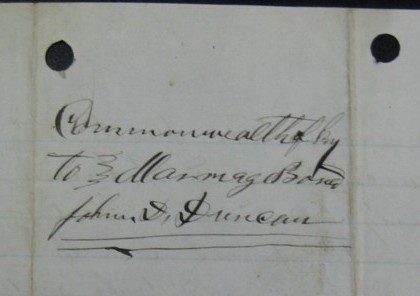 Commonwealth of Ky
To } Marriag Bond
John D. Duncan